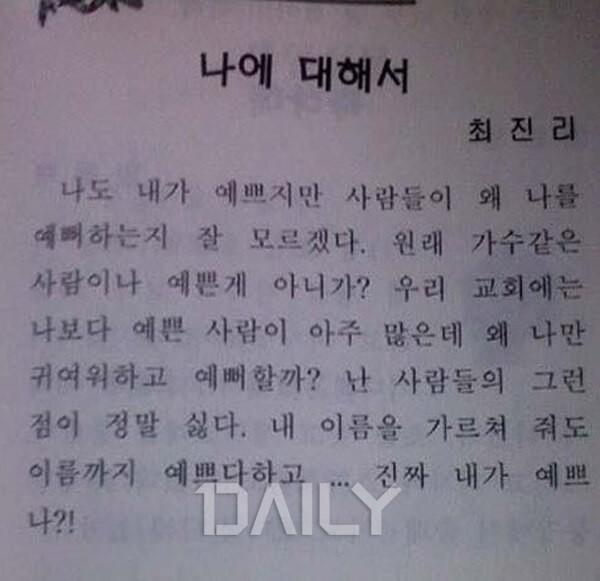 나에 대해서
최진리
나도 내가 예쁘지만 사람들이 왜 나를
예뻐하는지 잘 모르겠다. 원래 가수같은
사람이나 예쁜게 아니가? 우리 교회에는
나보다 예쁜 사람이 아주 많은데 왜 나만
귀여워하고 예뻐할까? 난 사람들의 그런
점이 정말 싫다. 내 이름을 가르쳐 줘도
이름까지 예쁘다하고 ... 진짜 내가 예쁘
나?!
1DAILY